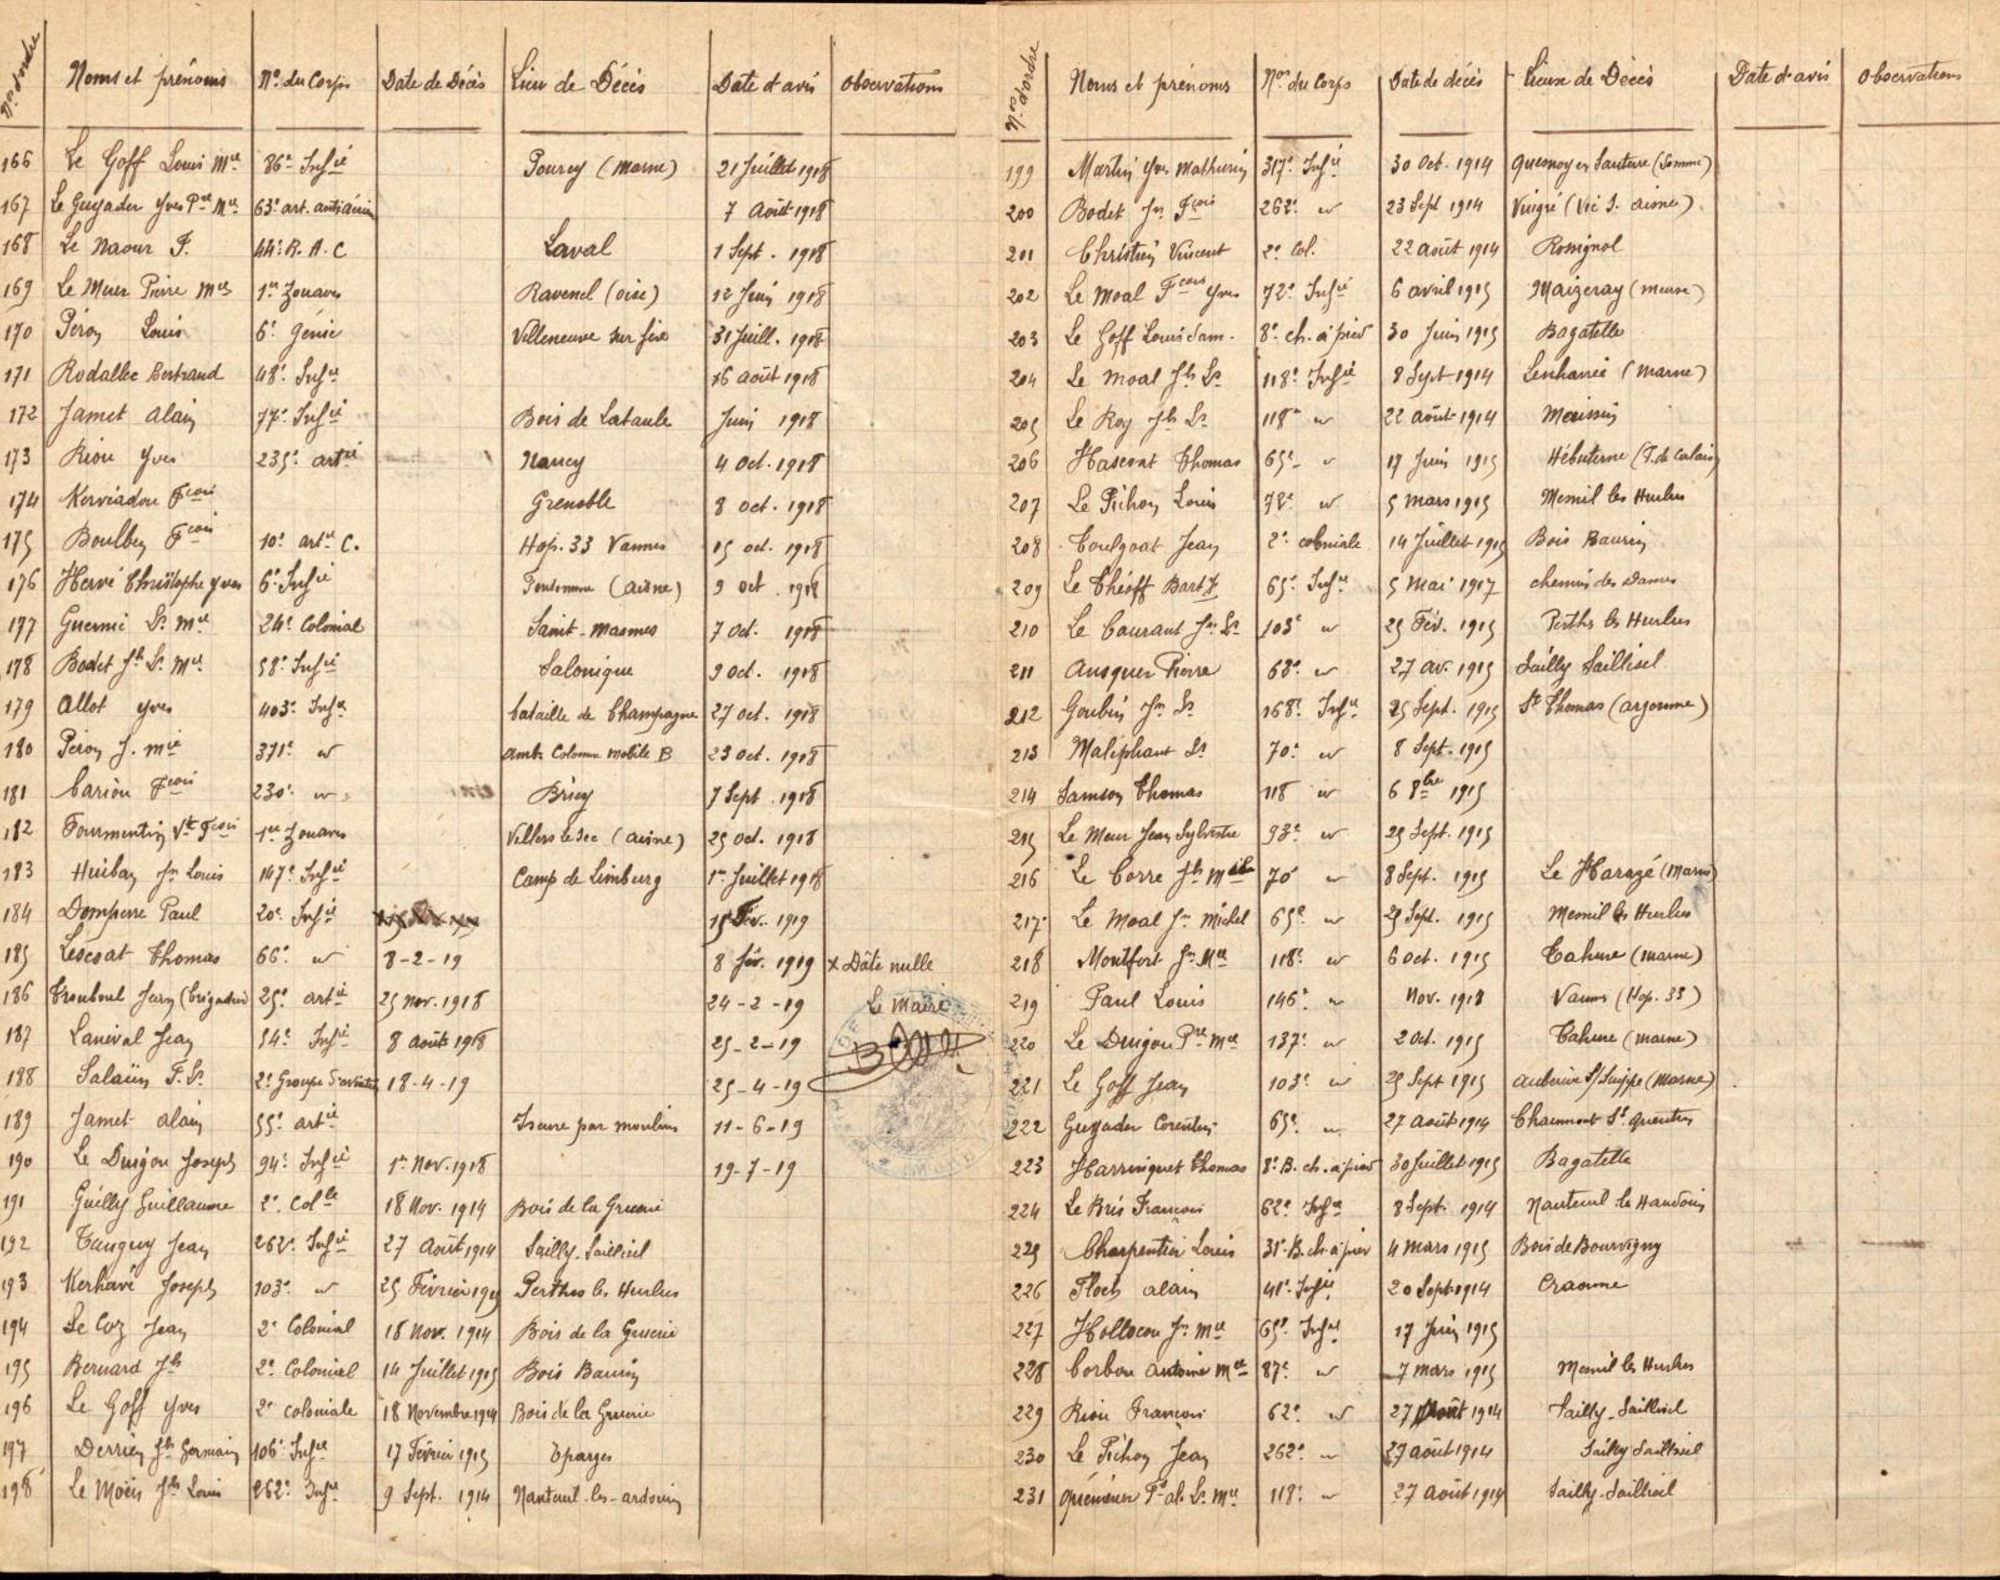 Nos d'ordre Noms et prénoms No. du Corps Date de Décès Lieu de Décès Date d'avis Observations
166 Le Goff Louis Mie 86e Infie Pourcy (Marne) 21 Juillet 1918
167 Le Guyader Yves Pre Mie 63e art. antiaérien 7 Août 1918
168 Le Naour F. 44e R.A.C Laval 1 Sept. 1918
169 Le Meur Pierre Mie 1er Zouaves Ravenel (oise) 12 Juin 1918
170 Péron Louis 6e Génie Villeneuve sur fère 31 Juill. 1918
171 Rodallec Bertrand 48e Infie 16 août 1918
172 Jamet alain 77e Infie Bois de Lataule Juin 1918
173 Riou Yves 235e artie Nancy 4 Oct. 1918
174 Kerviadou Fcois Grenoble 8 oct. 1918
175 Boulben Fcois 10e artie C. Hop. 33 Vannes 15 oct. 1918
176 Hervé Christophe Yves 6e Infie (aisne) 9 oct. 1918
177 Guermé Ls Mie 24e Colonial Saint-Masmes 7 Oct. 1918
178 Bodet Jh Ls Mie 58e Infie Salonique 9 Oct. 1918
179 Allot Yves 403e Infie bataille de Champagne 27 oct. 1918
180 Péron J. Mie 371e " Amb. Colonne mobile B 23 oct. 1918
181 Cariou Fcois 230e " Briey 7 Sept. 1918
182 Fourmentin Vt Fcois 1er Zouaves Villers le Sec (aisne) 25 Oct. 1918
183 Huiban Jn Louis 147e Infie Camp de Limburg 1er Juillet 1918
184 Domperre Paul 20e Infie 15 Fév. 1919
185 Lescoat Thomas 66e " 8-2-19 8 fév. 1919 x Date nulle
186 Trouboul Jean (brigadier) 25e artie 25 Nov. 1918 24-2-19 Le Maire
187 Lanéval Jean 54e Infie 8 août 1918 25-2-19
188 Salaün F. Ls 2e Groupe d'aviation 18-4-19 25-4-19
189 Jamet alain 55e artie Iseure par moulins 11-6-19
190 Le Duigou Joseph 94e Infie 1er Nov. 1918 19-7-19
191 Guilly Guillaume 2e Colle 18 Nov. 1914 Bois de la Grurie
192 Tanguy Jean 262e Infie 27 Août 1914 Sailly-Saillisel
193 Kerhavé Joseph 103e " 25 Février 1915 Perthes les Hurlus
194 Le Coz Jean 2e Colonial 18 Nov. 1914 Bois de la Gruerie
195 Bernard Jh 2e Colonial 14 Juillet 1915 Bois Baurin
196 Le Goff Yves 2e coloniale 18 Novembre 1914 Bois de la Gruerie
197 Derrien Jh Germain 106e Infie 17 Février 1915 Eparges
198 Le Moën Jh Louis 262e Infie 9 Sept. 1914 Nanteuil-les-ardouin
Nos d'ordre Noms et prénoms Nos du Corps Date de décès Lieux de Décès Date d'avis Observations
199 Martin Yves Mathurin 317e Infie 30 Oct. 1914 Quesnoy en Santerre (Somme)
200 Bodet Jn Fcois 262e " 23 Sept 1914 Vingré (Vic S. aisne)
201 Christien Vincent 2e Col. 22 août 1914 Rossignol
202 Le Moal Fcois Yves 72e Infie 6 avril 1915 Maizeray (meuse)
203 Le Goff Louis Sam. 8e ch. à pied 30 Juin 1915 Bagatelle
204 Le Moal Jh Ls 118e Infie 8 Sept 1914 Lenharrée (Marne)
205 Le Roy Jh Ls 118e " 22 août 1914 Meissin
206 Hascoat Thomas 65e " 17 Juin 1915 Hébuterne (P. de Calais)
207 Le Pichon Louis 72e " 5 mars 1915 Mesnil les Hurlus
208 Toulgoat Jean 2e coloniale 14 Juillet 1915 Bois Baurin
209 Le Théoff Bart. 65e Infie 5 Mai 1917 chemin des Dames
210 Le Caurant Jn Ls 103e " 25 Fév. 1915 Perths les Hurlus
211 Ausquer Pierre 68e " 27 av. 1915 Sailly Saillisel
212 Goubin Jn Ls 168e Infie 25 Sept. 1915 St Thomas (argonne)
213 Maliphant Ls 70e " 8 Sept. 1915
214 Samson Thomas 118 " 6 8bre 1915
215 Le Meur Jean Sylvestre 93e " 25 Sept. 1915
216 Le Corre Jh Mie 70e " 8 Sept. 1915 Le Harazé (Marne)
217 Le Moal Jn Michel 65e " 25 Sept. 1915 Mesnil les Hurlus
218 Montfort Jn Mie 118e " 6 oct. 1915 Tahure (marne)
219 Paul Louis 146e " Nov. 1918 Vannes (Hop. 33)
220 Le Duigou Pre Mie 137e " 2 Oct. 1915 Tahure (marne)
221 Le Goff Jean 103e " 25 Sept 1915 auberive s/Suippe (Marne)
222 Guyader Corentin 65e " 27 août 1914 Chaumont St. Quentin
223 Harrinquet Thomas 8e B. ch. à pied 30 Juillet 1915 Bagatelle
224 Le Bris François 62e Infie 8 Sept. 1914 Nanteuil le Haudoin
225 Charpentier Louis 31e B. ch. à pied 4 mars 1915 Bois de Bouvigny
226 Floch alain 41e Infie 20 Sept 1914 Craonne
227 Hollocou Jn Mie 65e Infie 17 Juin 1915
228 Corbou Antoine Mie 87e " 7 mars 1915 Mesnil les Hurlus
229 Riou François 62e " 27 Août 1914 Sailly-Saillisel
230 Le Pichon Jean 262e " 27 août 1914 Sailly Saillisel
231 Quéméneur Ls Mie 118e " 27 août 1914 Sailly-Saillisel